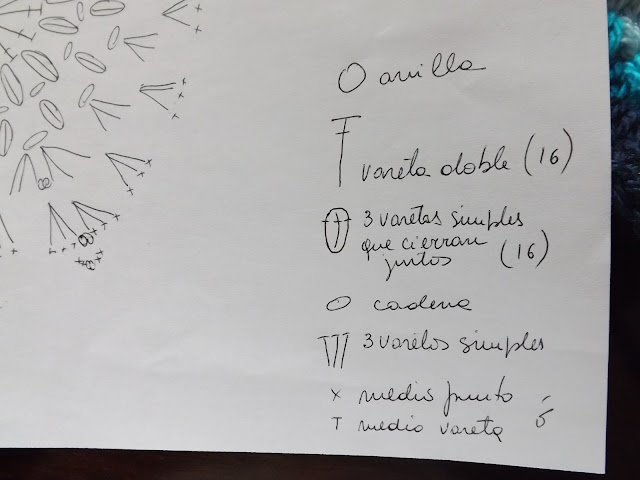 O anilla
vareta doble (16)
3 varetas simples
que cierran
juntos (16)
o cadena
3 varetas simples
x medio punto ó
T medio vareta